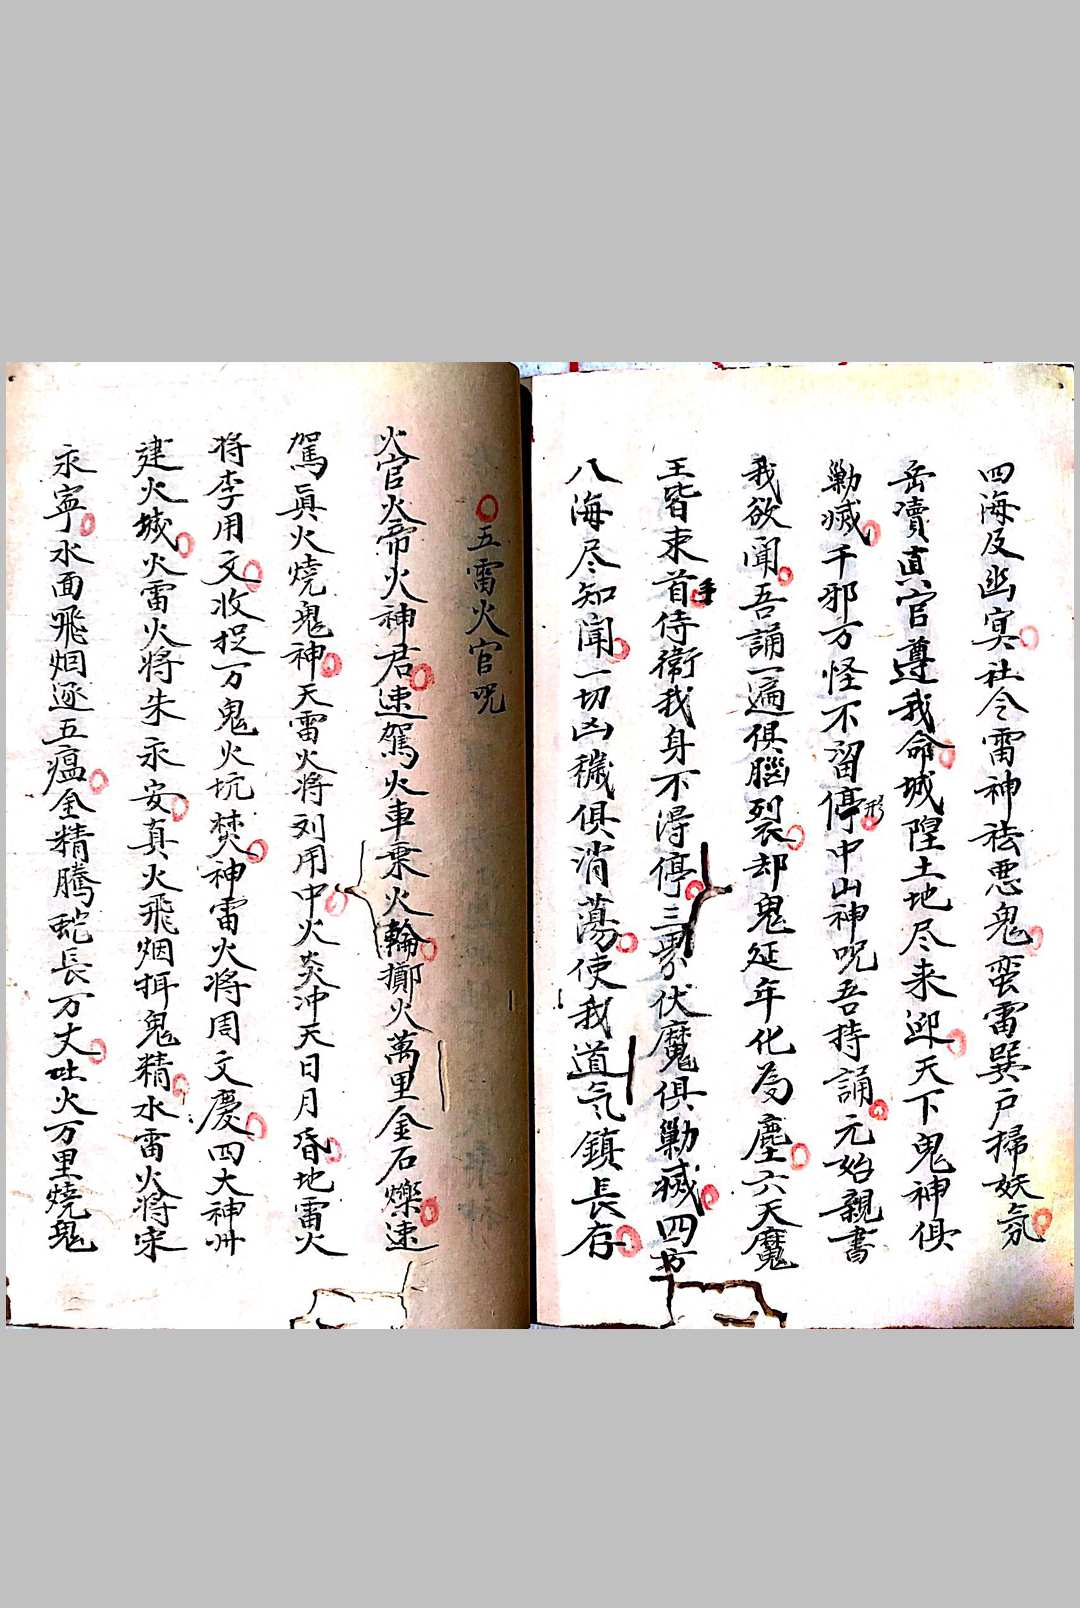 四海及幽冥社令雷神祛悪鬼蛮雷巽戸掃妖氛
岳凟真官遵我命城隍土地尽来迎天下鬼神俱
勦滅千邪万怪不留停形中山神呪吾持誦元始親書
我欲聞吾誦一遍俱腦裂却鬼延年化為塵六天魔
王皆束首手侍衛我身不得停三界伏魔俱勦滅四方
八海尽知聞一切凶穢俱消蕩使我道气鎮長存
五雷火官呪
火官火帝火神君速駕火車乗火輪擲火萬里金石爍速
駕真火燒鬼神天雷火将列用中火炎冲天日月昏地雷火
将李用文收捉万鬼火坑焚神雷火将周文慶四大神州
建火城火雷火将朱永安真火飛烟拜鬼精水雷火将宋
永寧水面飛烟逐五瘟金精騰蛇長万丈吐火万里燒鬼